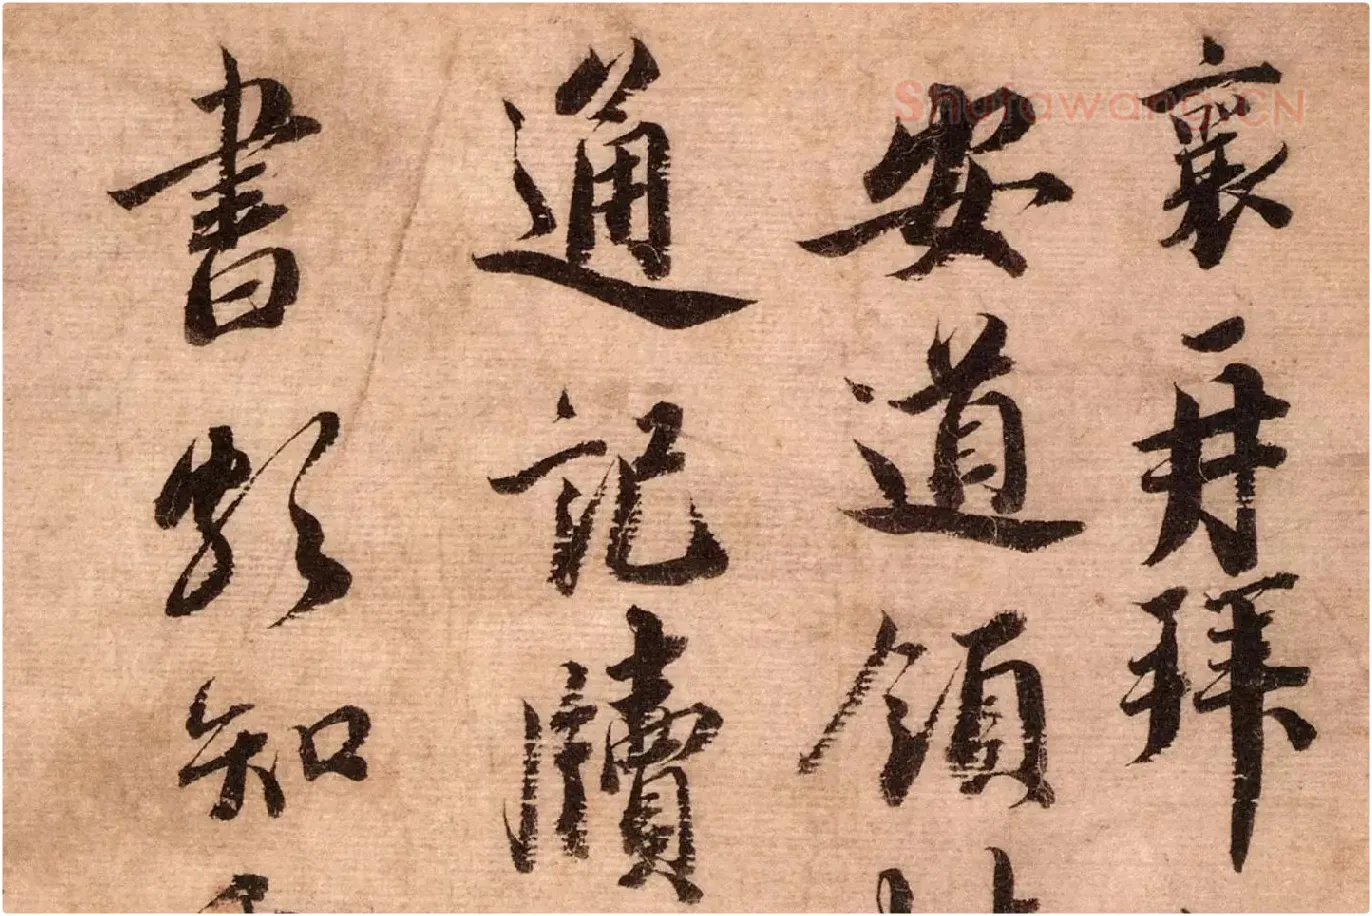 襄再拜
安道領
通記牘
書頗知
Shufawang.CN